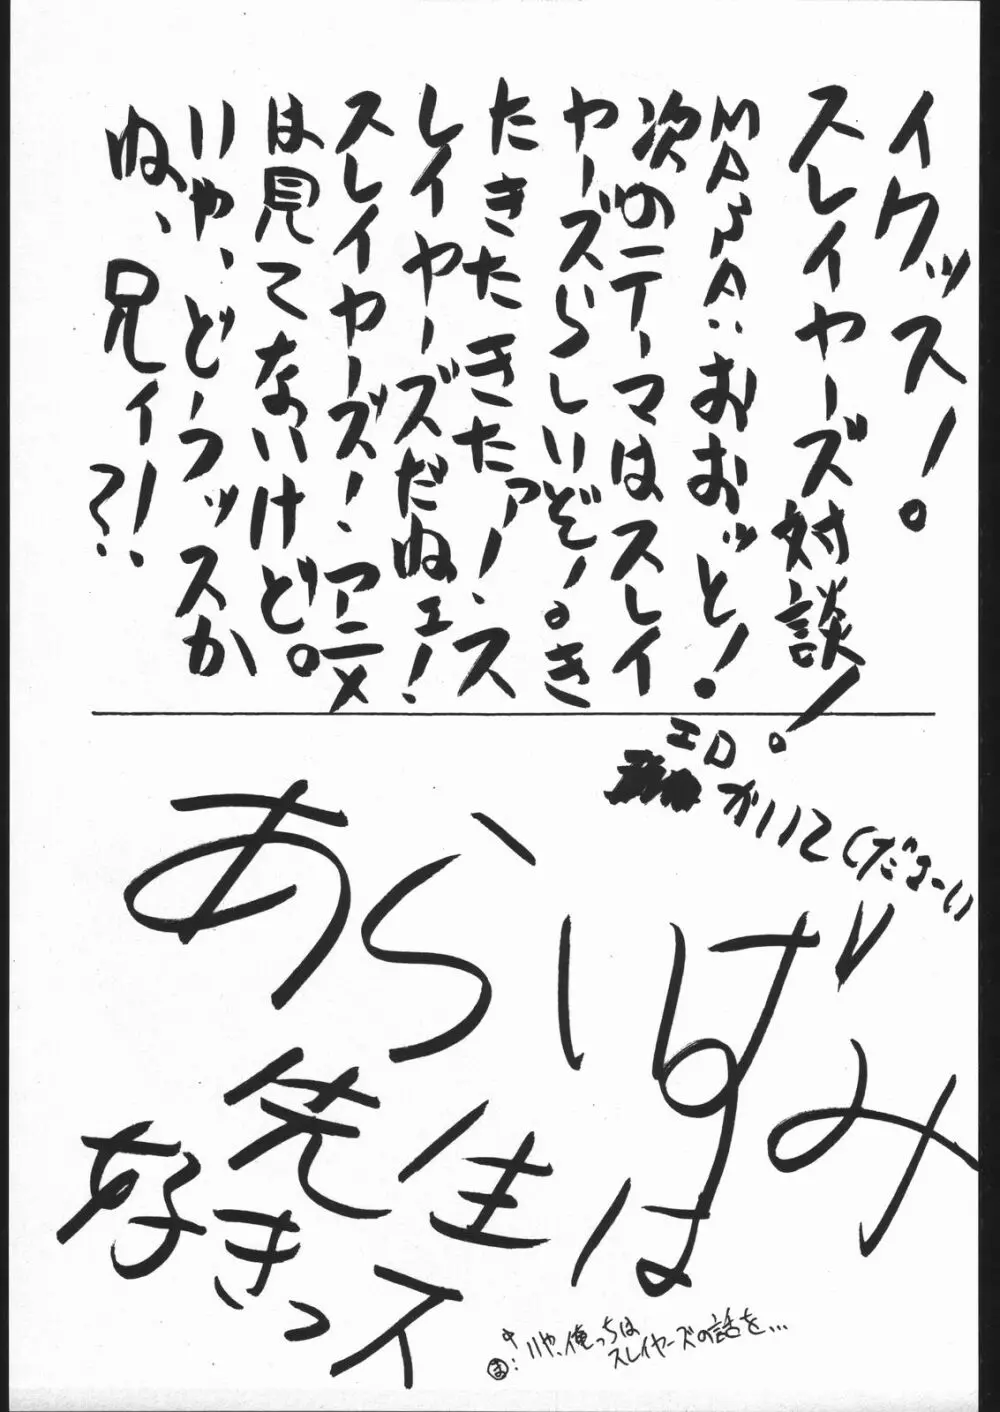 イクッス！。
スレイヤーズ対談！。
MARA:おおッと！。
次のテーマはスレイ
ヤーズらしいぞー。き
たきたきたァー！、ス
レイヤーズだねェ！
スレイヤーズ！、アニメ
は見てないけど。
いや、どうッスか
ね、兄ィ！！？
エロ
かいてくだはーい
みずいらは
あら先生
好きっス
ま:いや、俺っちは
スレイヤーズの話を…